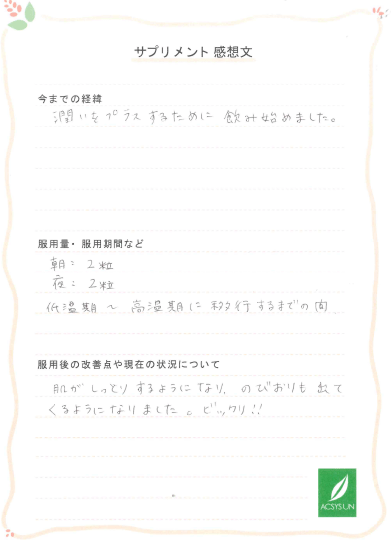 サプリメント 感想文
今までの経緯
潤いをプラスするために 飲み始めました。
服用量・服用期間など
朝: 2粒
夜: 2粒
低温期〜高温期に移行するまでの間
服用後の改善点や現在の状況について
肌がしっとりするようになり、のびおりも出て
くるようになりました。ビックリ!!
ACSYSUN